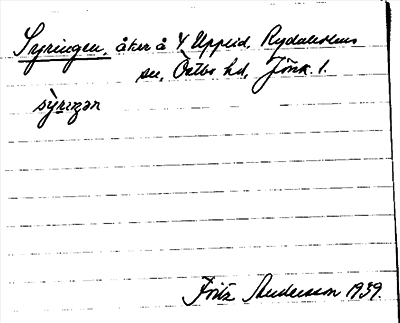 Syringen, åker å Y Upplid, Rydaholms
sn, Östbo hd, Jönk. l.
sỳrɪŋən
Fritz Andersson 1939.